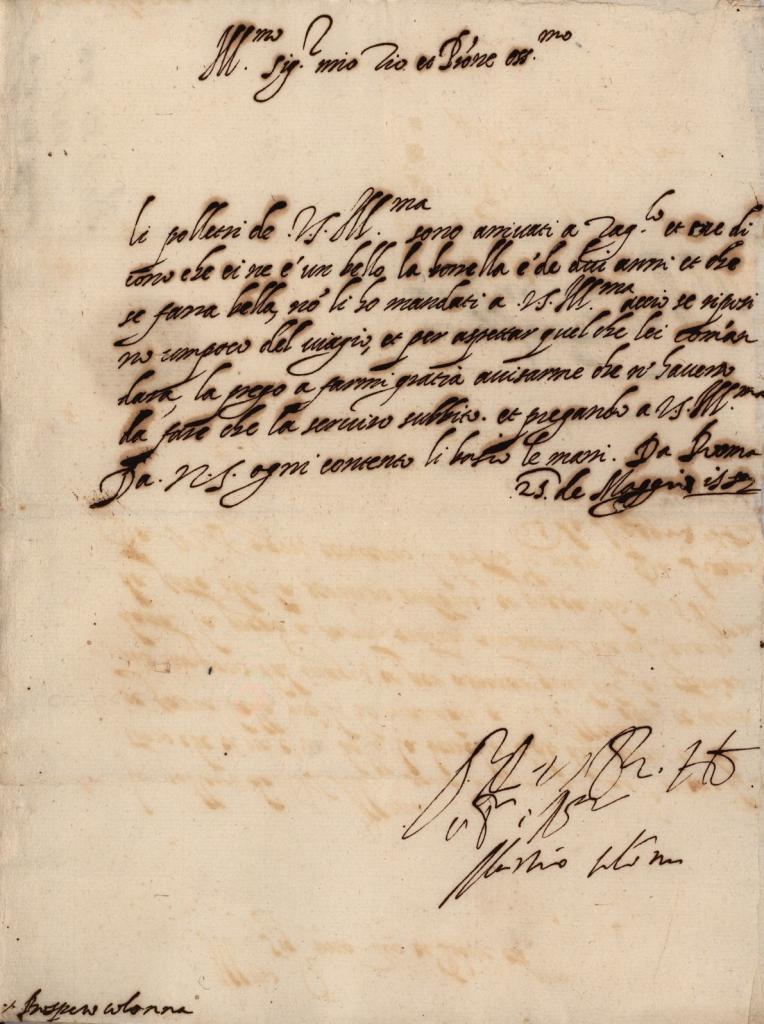 Ill.mo Sig.r mio Zio et P'rone oss.mo
li polletri de V.S. Ill.ma sono arrivati a Zag.lo et me di
cono che ei ne é un bello, la borella é de dui anni et che
se farra bella, nó li ho mandati a V.S. Ill.ma accio se riposi
no unpoco del viagio, et per aspettar quel che lei com'an
dara, la prego a farmi gratia avisarme che n' havero
da fare che la serviro subbito. et pregando a V.S. Ill.ma
Da. N.S. ogni contento li bascio le mani. Da Roma
25. de Maggio 1582
Martio Colonna
Prospero colonna